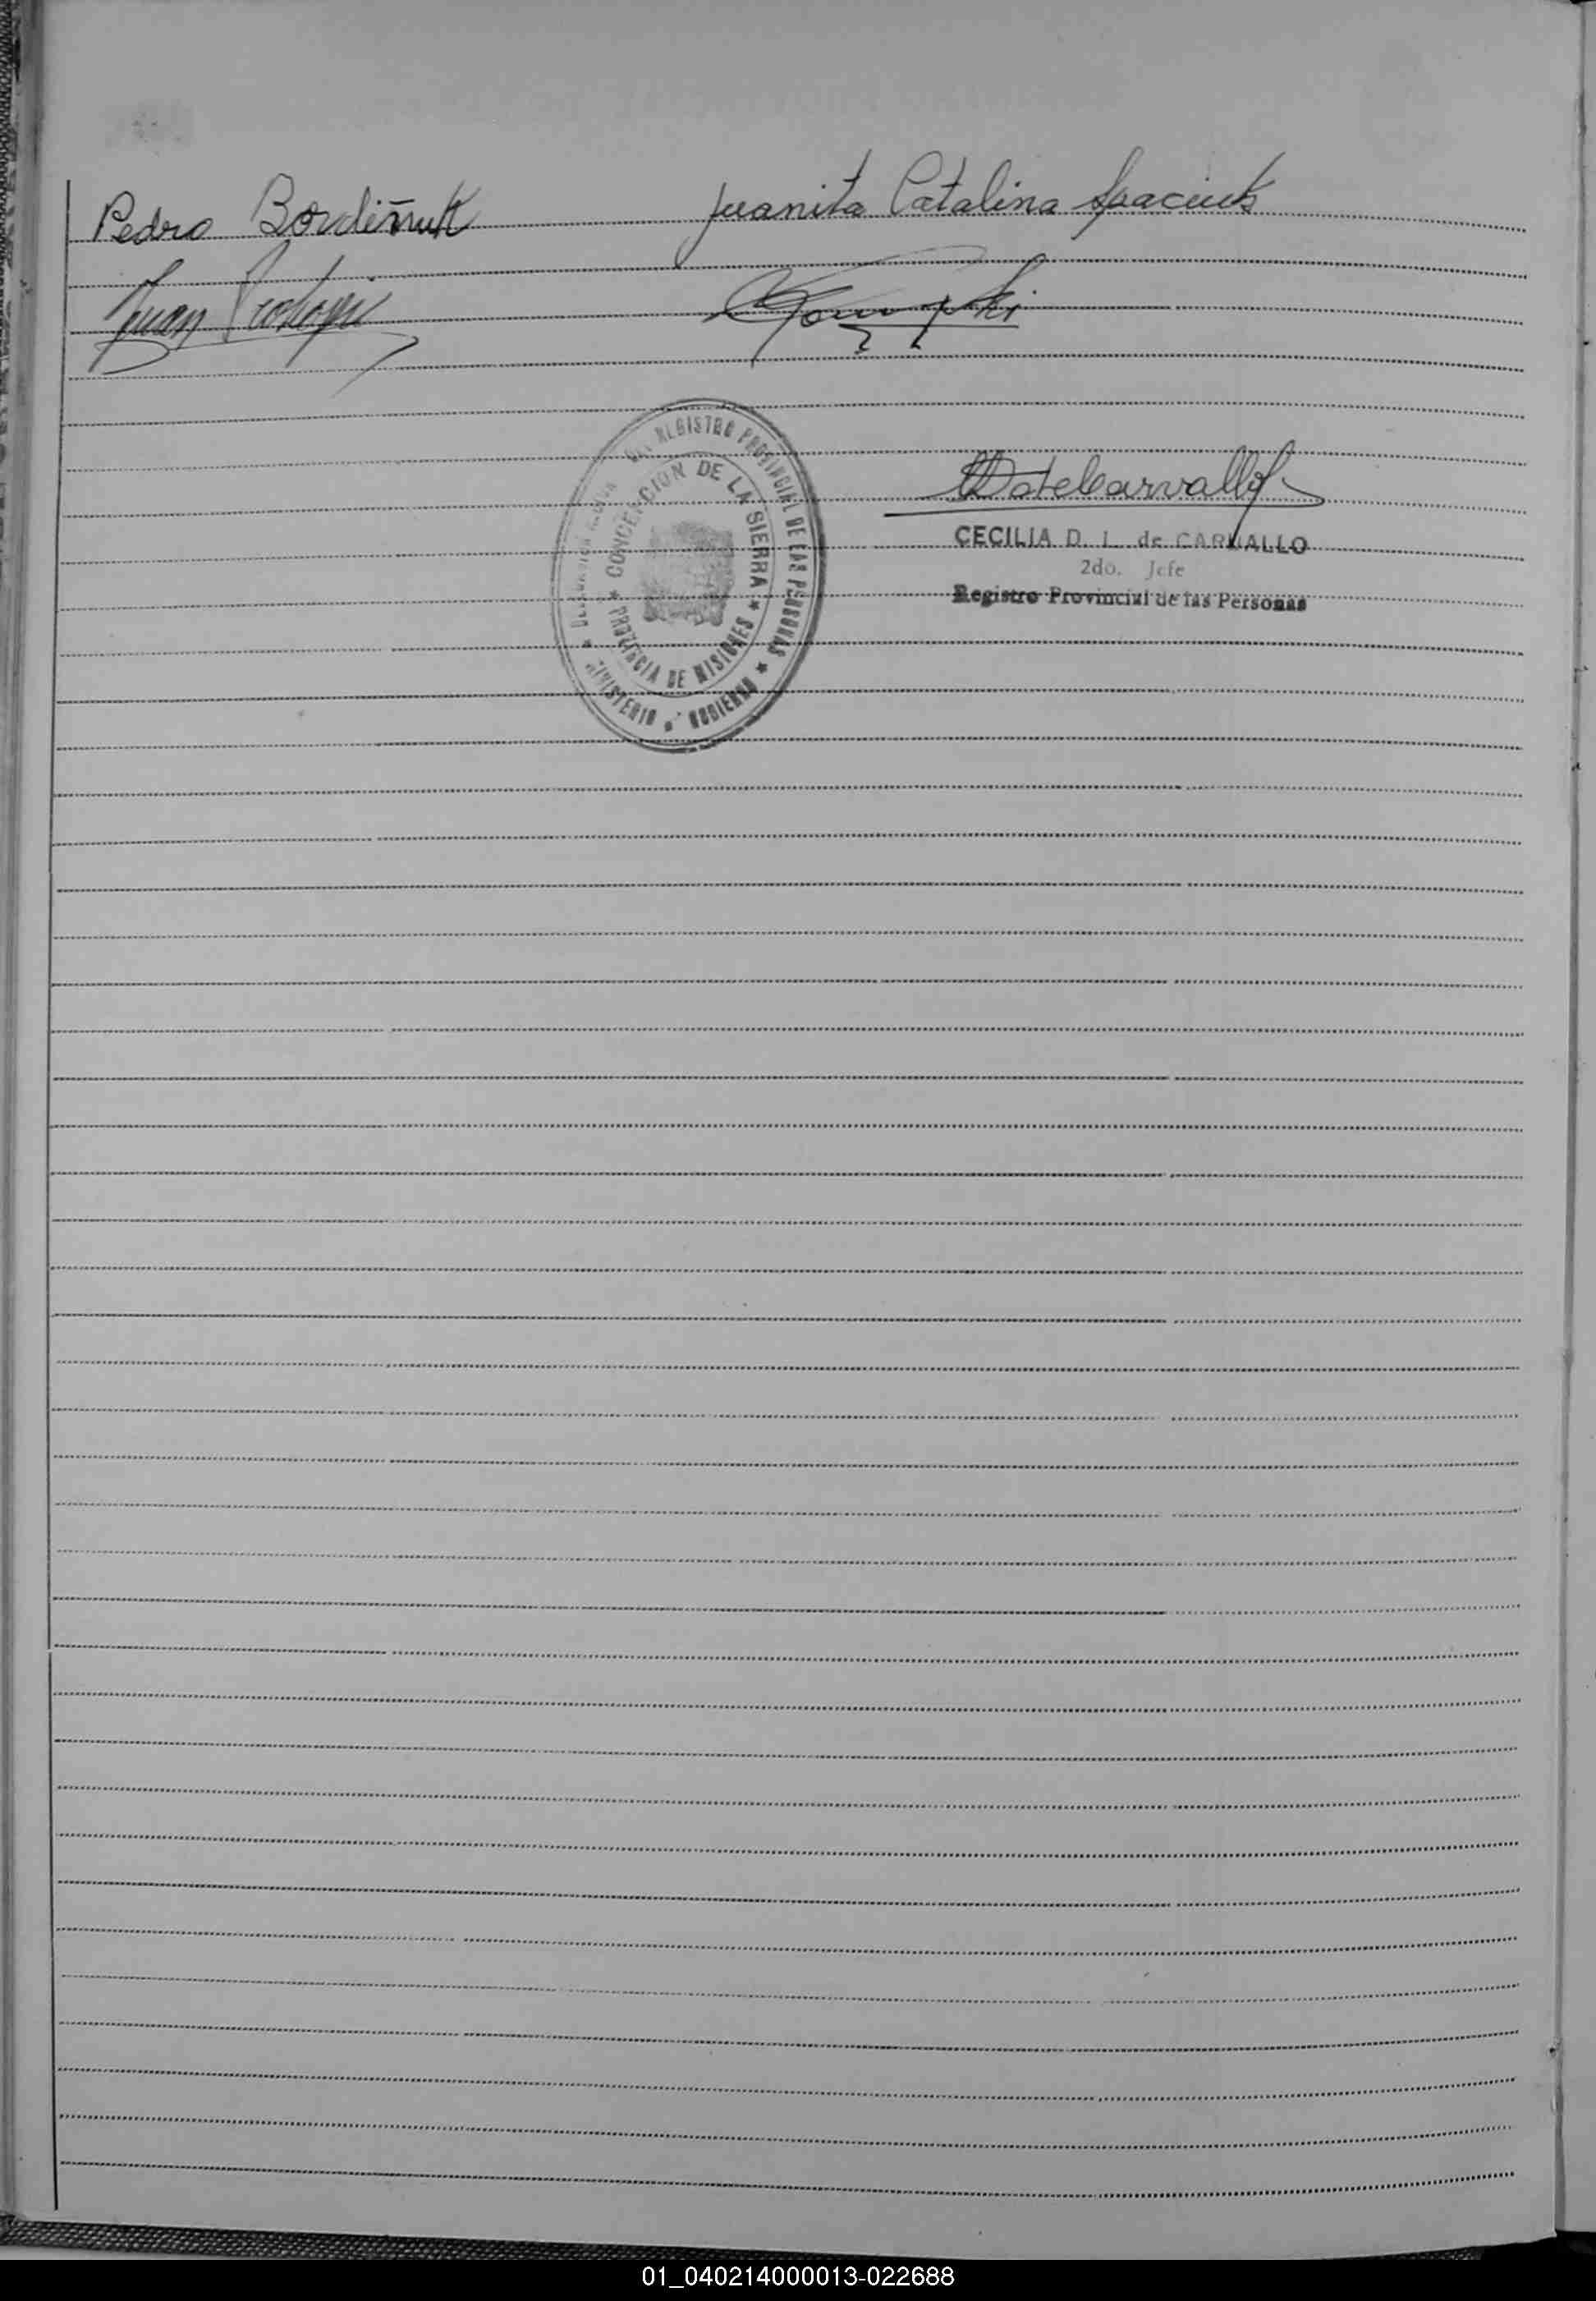 Pedro Bordiñuk
Juanita Catalina Spaciuk
Juan
DEL REGISTRO PROVINCIAL DE LAS PERSONAS
CONCEPCION DE LA SIERRA
PROVINCIA DE MISIONES
MINISTERIO GOBIERNO
CECILIA D. L. de CARVALLO
2do. Jefe
Registro Provincial de las Personas
01_040214000013-022688